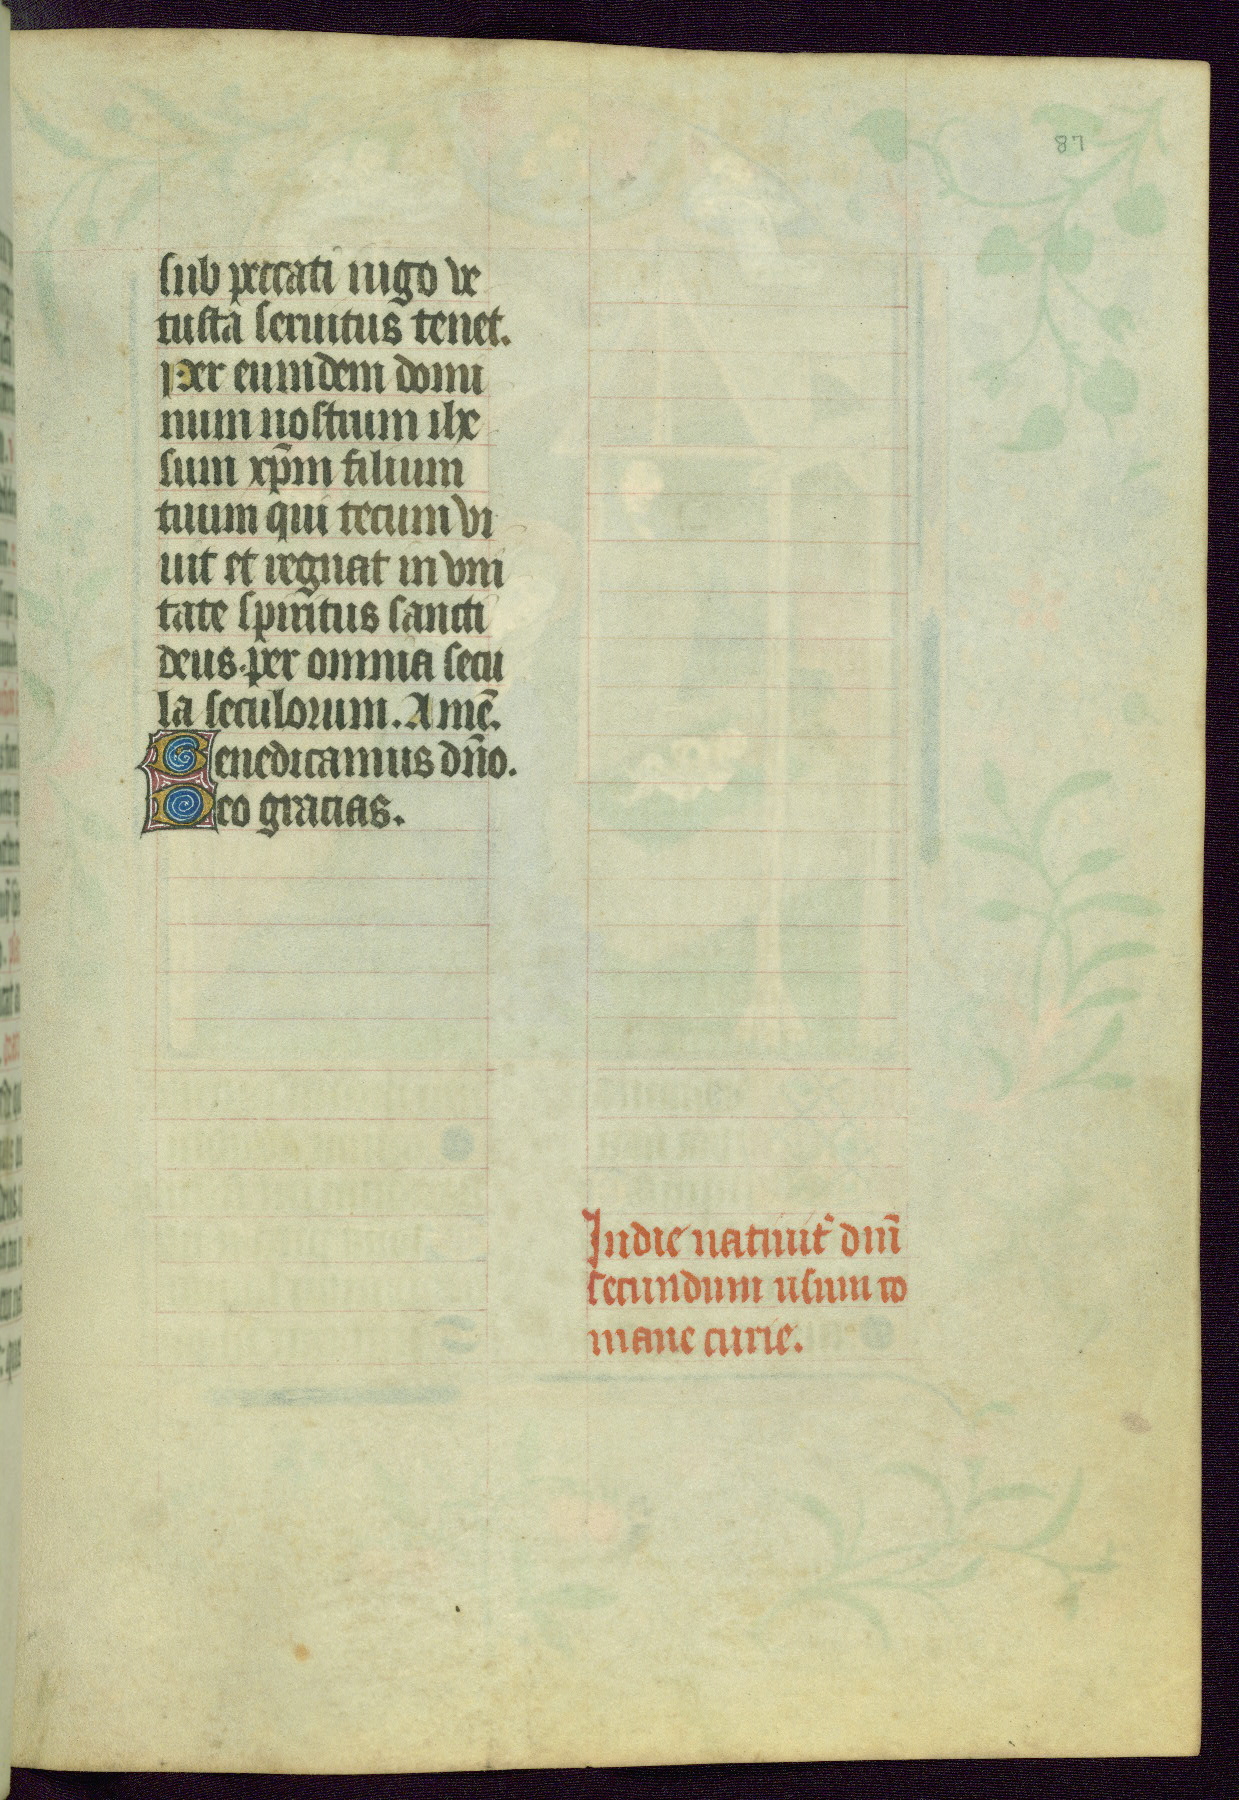 87
sub peccati iugo ve
tustā seruitus tenet.
Per eumdem domi
num nostrum ihe
sum xp̄m filium
tuum qui tecum vi
uit et regnat in vni
tate spiritus sancti
deus. per omnia secu
la seculorum. Amē.
Benedicamus dn̄o.
Deo gracias.
In die natiuit᷑ dn̄i
secundum usum ro
mane curie.